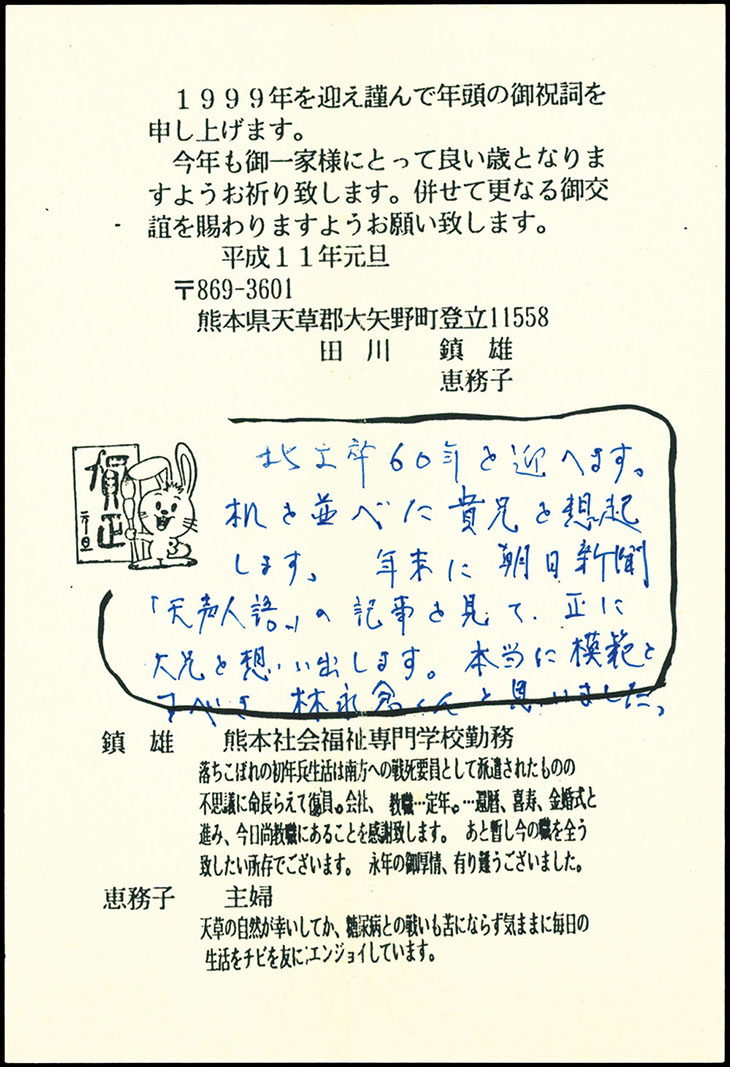 １９９９年を迎え謹んで年頭の御祝詞を
申し上げます。
今年も御一家様にとって良い歳となりま
すようお祈り致します。併せて更なる御交
誼を賜わりますようお願い致します。
平成１１年元旦
〒869-3601
熊本県天草郡大矢野町登立11558
田川 鎮雄
恵務子
賀正
元旦
北立卒60年を迎へます。
机を並べた貴兄を想起
します。 年末に朝日新聞
「天声人語」の記事を見て、正に
大兄を想い出します。本当に模範と
すべき 林永倉くんと思いました。
鎮雄 熊本社会福祉専門学校勤務
落ちこぼれの初年兵生活は南方への戦死要員として派遣されたものの
不思議に命長らえて復員。会社、 教職…定年。…還暦、喜寿、金婚式と
進み、今日尚教職にあることを感謝致します。 あと暫し今の職を全う
致したい所存でございます。 永年の御厚情、有り難うございました。
恵務子 主婦
天草の自然が幸いしてか、糖尿病との戦いも苦にならず気ままに毎日の
生活をチビを友にエンジョイしています。